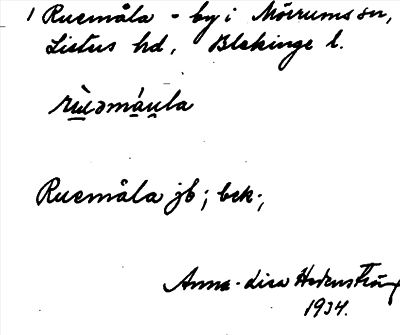 1 Ruemåla - by i Mörrums sn,
Listers hd, Blekinge l.
rùəmá̱u̱la
Ruemåla jb; bek.,
Anna-Lisa Hedenström
1934.